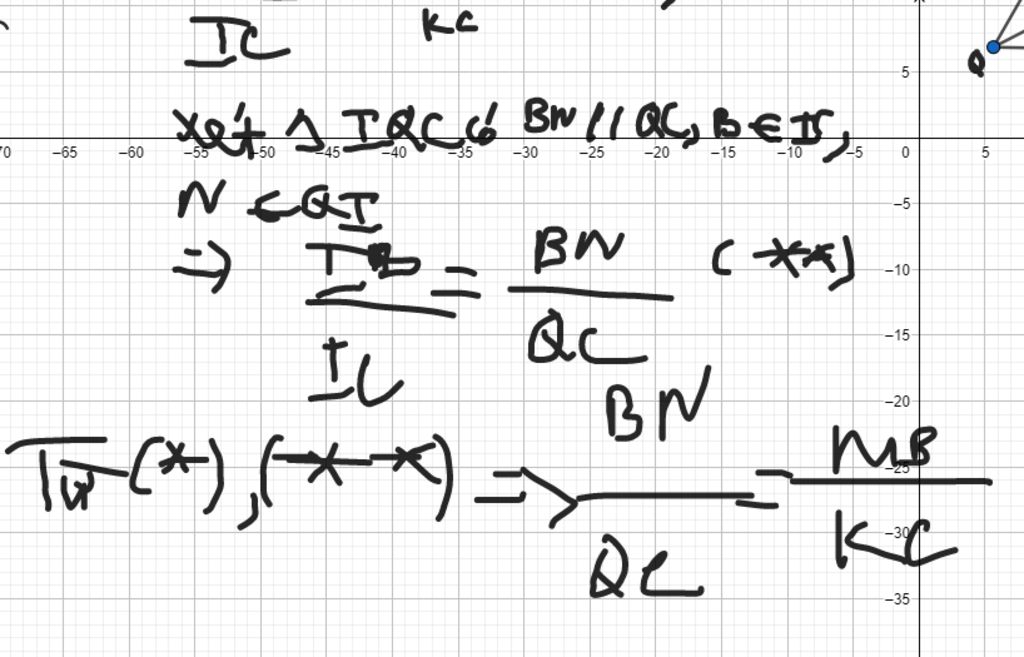 IC KC
Q
5
Xét Δ IQC có BN // QC, B ∈ IC,
-70 -65 -60 -55 -50 -45 -40 -35 -30 -25 -20 -15 -10 -5 0 5
N ∈ QI
-5
=> IB/IC = BN/QC (**)
-10
-15
-20
Từ (*), (**) => BN/QC = MB/KC
-25
-30
-35